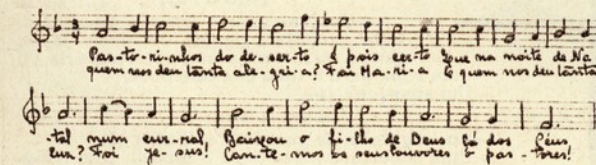 Pas-to-ri-nhos do de-ser-to É pois cer-to Que na noite de Na
quem nos deu tanta ale-gri-a? Foi Ma-ri-a E quem nos deu tanta
-tal num cur-ral Baixou o fi-lho de Deus Lá dos Céus,
luz? Foi Je-sus! Can-te-mos os seus louvores ó pas-tores!